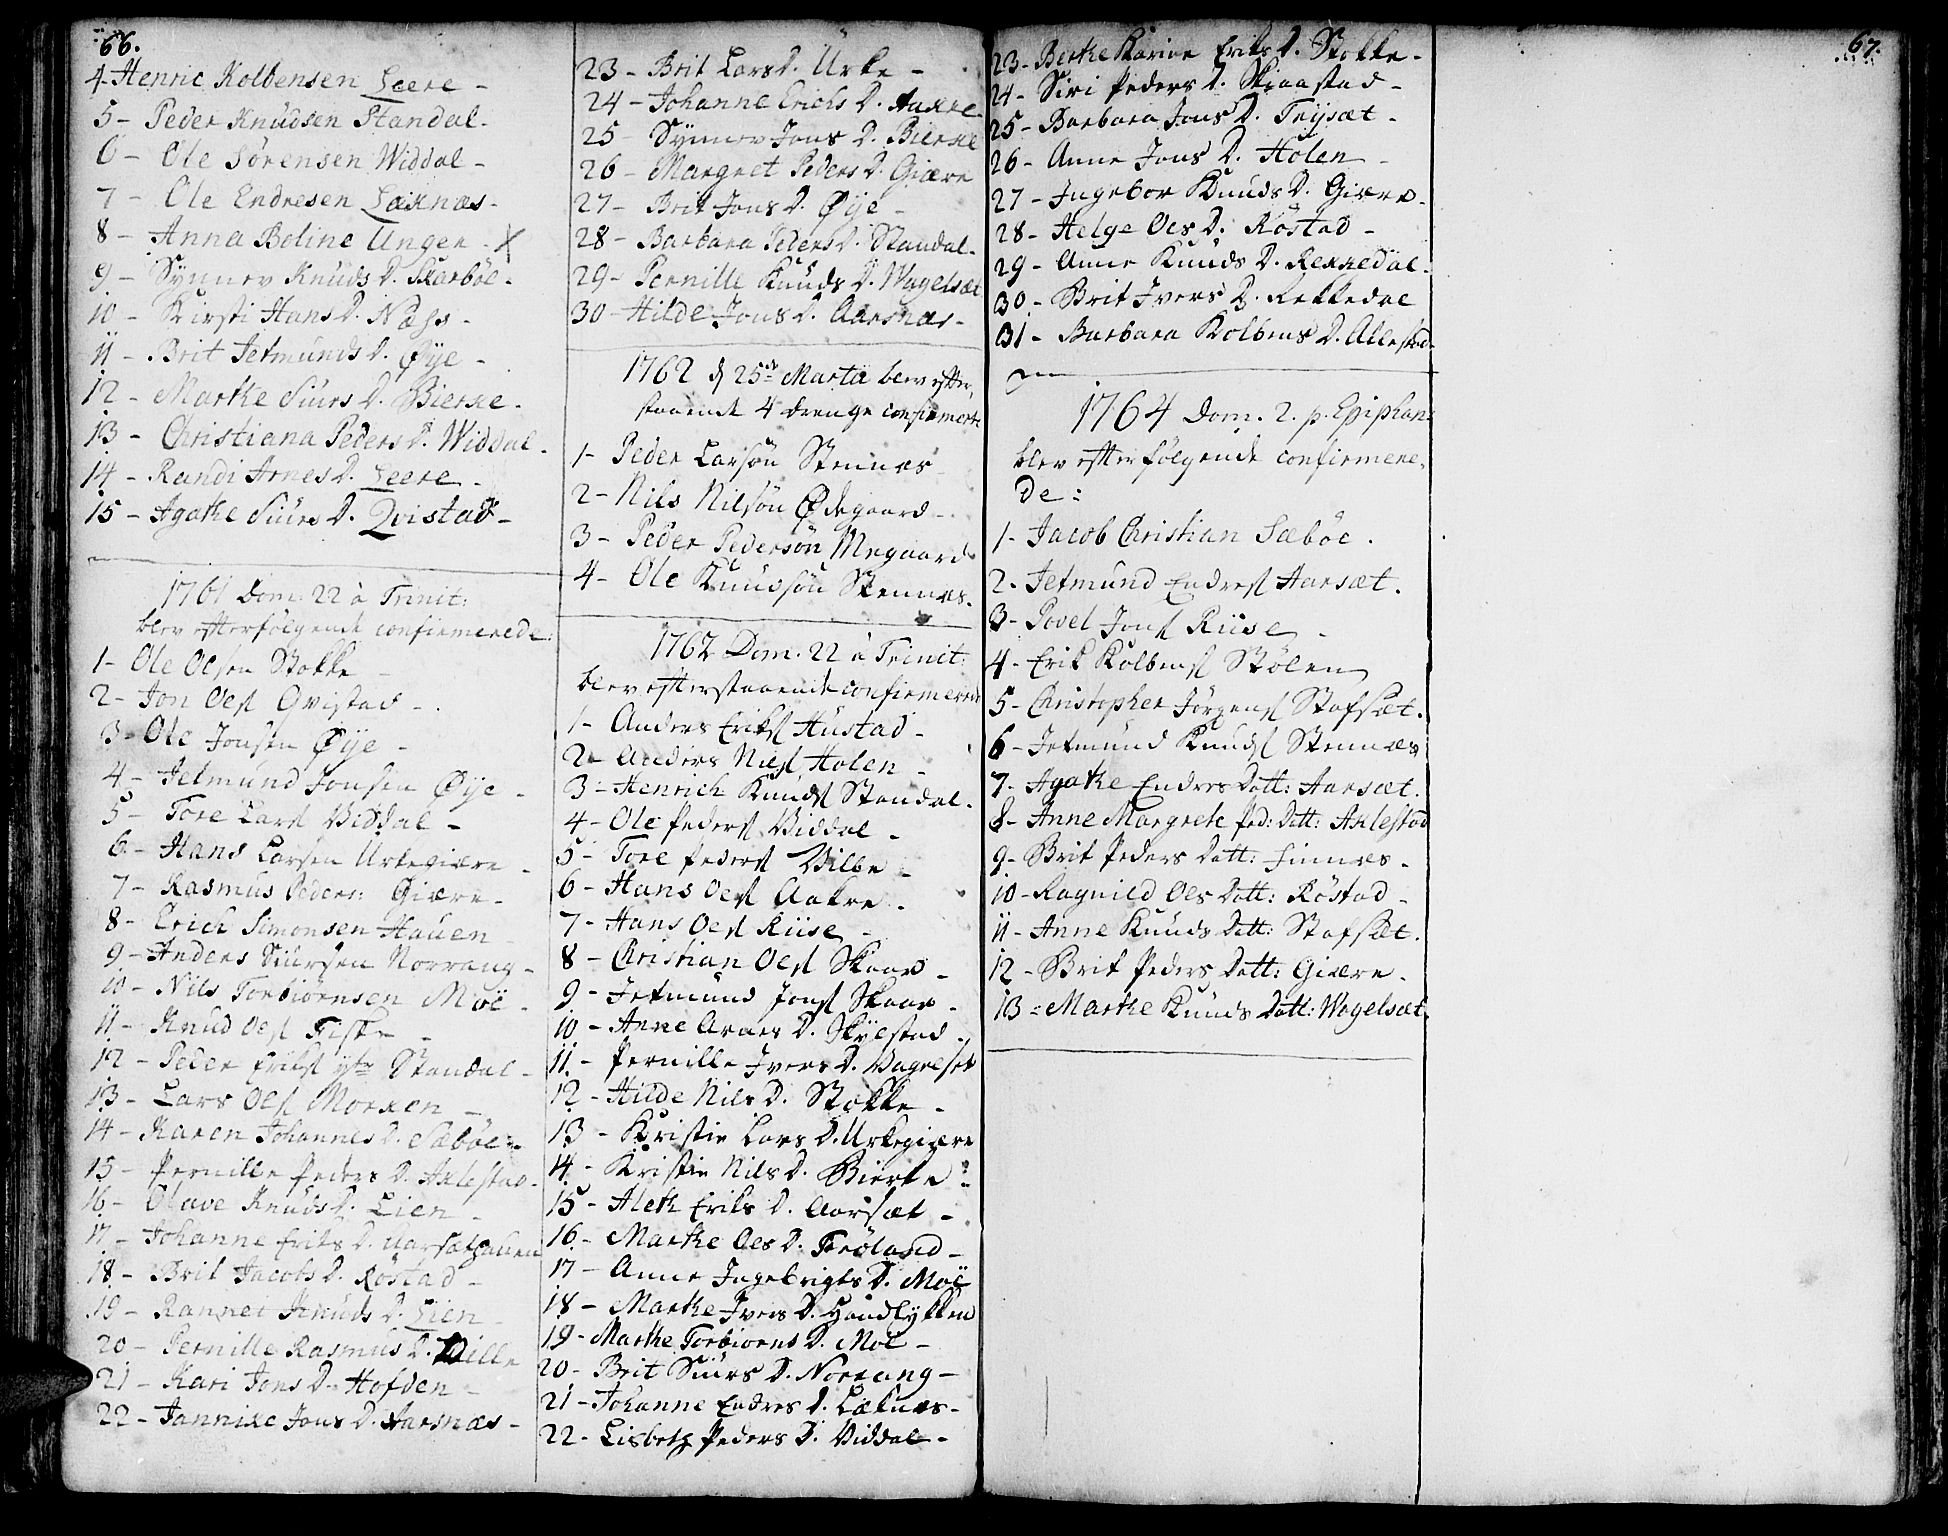 66.
4- Henric Kolbensen Leere -
5 - Peder Knudsen Standal -
6 - Ole Sørensen Widdal -
7 - Ole Endresen Læknæs -
8 - Anna Boline Unger - X
9 - Synnev Knuds D. Skarbøe -
10 - Kirsti Hans D. Næss -
11 - Brit Jetmunds D. Øye -
12 - Marthe Siurs D. Bierke -
13 - Christiana Peders D. Widdal -
14 - Randi Arnes D. Leere -
15 - Agathe Siurs D. Qvistad -
1761 Dom. 22 à Trinit:
blev efterfølgende confirmerede:
1- Ole Olsen Stokke -
2 - Jon Oles Qvistad -
3- Ole Jonsen Øye -
4 - Jetmund Jonsen Øye -
5 - Tore Lars Viddal -
6 - Hans Larsen Urkegiære -
7 - Rasmus Peders: Giære -
8 - Erich Simonsen Hauen
9 - Anders Siursen Norrang -
10 - Nils Torbiørnsen Moe -
11 - Knud Oles Fiske -
12 - Peder Eriks ytr Standal -
13 - Lars Oles Morken -
14 - Karen Johannes D. Sæbøe -
15 - Pernille Peders D. Axlestad -
16 - Olave Knuds D. Lien -
17 - Johanne Eriks D. Aarsæthauen
18 - Brit Jacobs D. Røstad -
19 - Rannei Knuds D. Lien -
20 - Pernille Rasmus D. Ville
21 - Kari Jons D. Hofden -
22 - Jannike Jons D. Aarsnæs -
23 - Brit Lars D. Urke -
24 - Johanne Erichs D. Aakre
25 - Synnev Jons D. Bierke
26 - Margret Peders D. Giære
27 - Brit Jons D. Øye -
28 - Barbara Peders D. Standal -
29 - Pernille Knuds D. Wagelsæt
30 - Hilde Jons D. Aarsnæs -
1762 d 25de Martii blev efter
staaende 4 drenge confirmerte
1- Peder Larsøn Stennes
2 - Nils Nilsøn Ødegaard -
3 - Peder Pedersøn Megaard
4 - Ole Knudsøn Stennæs.
1762 Dom. 22 à Trinit:
blev efterstaaende confirmerede
1- Anders Eriks Hustad -
2 - Anders Niels Holen -
3 - Henrich Knuds Standal -
4 - Ole Peders Viddal -
5 - Tore Peders Ville -
6 - Hans Oles Aakre -
7 - Hans Oles Riise -
8 - Christian Oles Skaar -
9 - Jetmund Jons Skaar -
10 - Anne Arnes D. Skyestad -
11 - Pernille Ivers D. Vagelset
12 - Hilde Nils D. Stokke -
13 - Kristie Lars D. Urkegiære
14 - Kristie Nils D. Bierke -
15 - Aleth Eriks D. Aarsæt -
16 - Marthe Oles D. Frøland -
17 - Anne Ingebrigts D. Moe
18 - Marthe Ivers D. Haudlykken
19 - Marthe Torbiørns D. Moe -
20 - Brit Siurs D. Norrang -
21 - Johanne Endres D. Læknes -
22 - Lisbeth Peders D. Viddal -
67.
23 - Berthe Karine Eriks D. Stokke -
24 - Siri Peders D. Skiaastad -
25 - Barbara Jons D. Trysæt -
26 - Anne Jons D. Holen -
27 - Ingebor Knuds D. Giære -
28 - Helge Oles D. Røstad -
29 - Anne Knuds D. Rekkedal -
30 - Brit Ivers D. Rekkedal
31 - Barbara Kolbens D. Allestad -
1764 Dom. 2. p. Epiphan:
blev efterfølgende confirmere-
de:
1- Jacob Christian Sæbøe .
2 - Jetmund Endres Aarsæt.
3 - Povel Jons Riise -
4 - Erik Kolbens Stølen
5 - Christopher Jørgens Stafsæt.
6 - Jetmund Knuds Stennæs
7 - Agathe Endres Datt: Aarsæt.
8 - Anne Margrete Ped: Datt: Axlestad
9 - Brit Peders Datt: Finnes -
10 - Ragnild Oles Datt: Røstad -
11 - Anne Knuds Datt: Stafsæt.
12 - Brit Peders Datt: Giære -
13 - Marthe Knuds Datt: Wagelsæt.